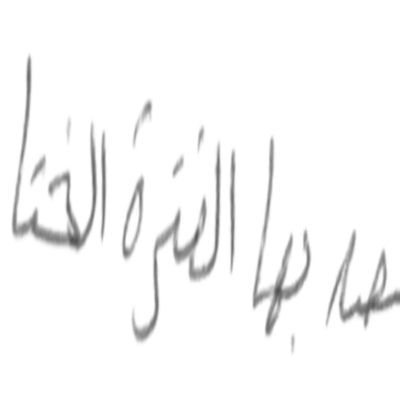 صد بها الفترة الختا